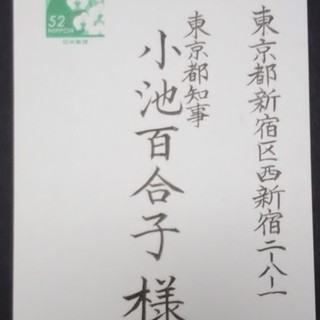 東京都新宿区西新宿二-八-一
東京都知事
小池百合子様
52
NIPPON
日本郵便